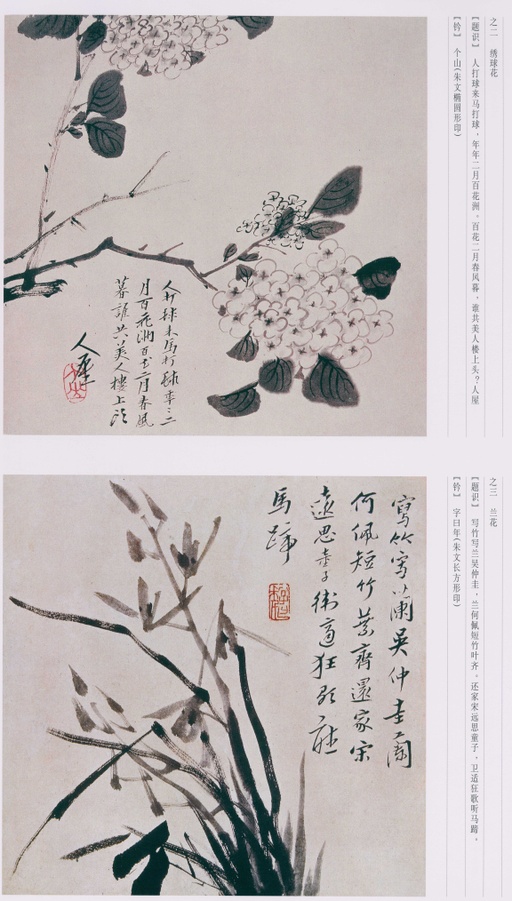 之二 绣球花
【题识】 人打球来马打球，年年二月百花洲。百花二月春风暮，谁共美人楼上头？人屋
【钤】 个山(朱文椭圆形印)
人打毬来馬打毬年〻二
月百花洲百花二月春風
暮誰共美人樓上頭
人屋
个山
之三 兰花
【题识】 写竹写兰吴仲圭，兰何佩短竹叶齐。还家宋远思童子，卫适狂歌听马蹄。
【钤】 字曰年(朱文长方形印)
寫竹寫蘭吳仲圭蘭
何佩短竹葉齊還家宋
遠思童子衛適狂歌聽
馬蹄